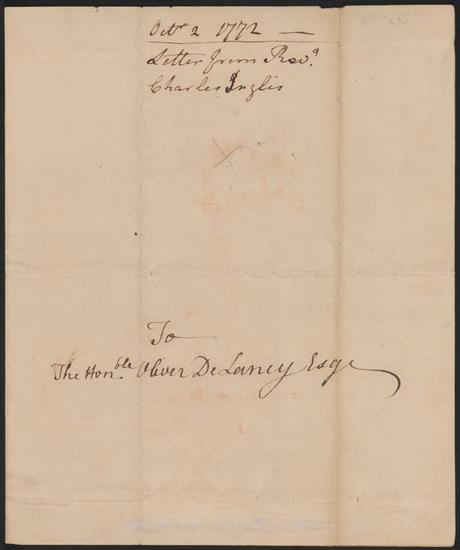 Octr 2 1772 —
Letter from Revd.
Charles Inglis
To
The Honble. Oliver De Lancy Esqr